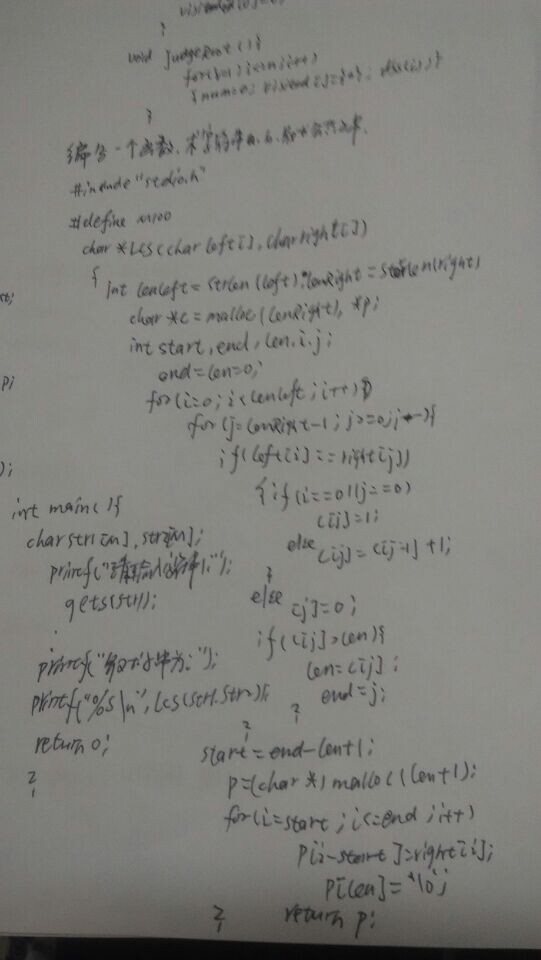 void judgeRoot(){
编写一个函数,求字符串a.b.最大公共子串.
#include"stdio.h"
#define M100
char *Lcs(char left[],char right[])
{ int lenLeft=strlen(left),lenRight=strlen(right)
char *c=malloc(lenRight),*p;
int start,end,len,i.j;
end=len=0;
for(i=0;i<lenLeft;i++){
for(j=lenRight-1;j>=0;j--){
if(left[i]==right[j])
{if(i==0||j==0)
c[j]=1;
else
c[j]=c[j-1]+1;
}
else
c[j]=0;
if(c[j]>len){
len=c[j];
end=j;
}
}
start=end-len+1;
p=(char *)malloc(len+1);
for(i=start;i<=end;i++)
p[i-start]=right[i];
p[len]='\0';
return p;
}
int main(){
char str1[M],str2[M];
printf("请输入字符串1:");
gets(str1);
printf("最大子串为:");
printf("%s\n",Lcs(str1.str2);
return 0;
}